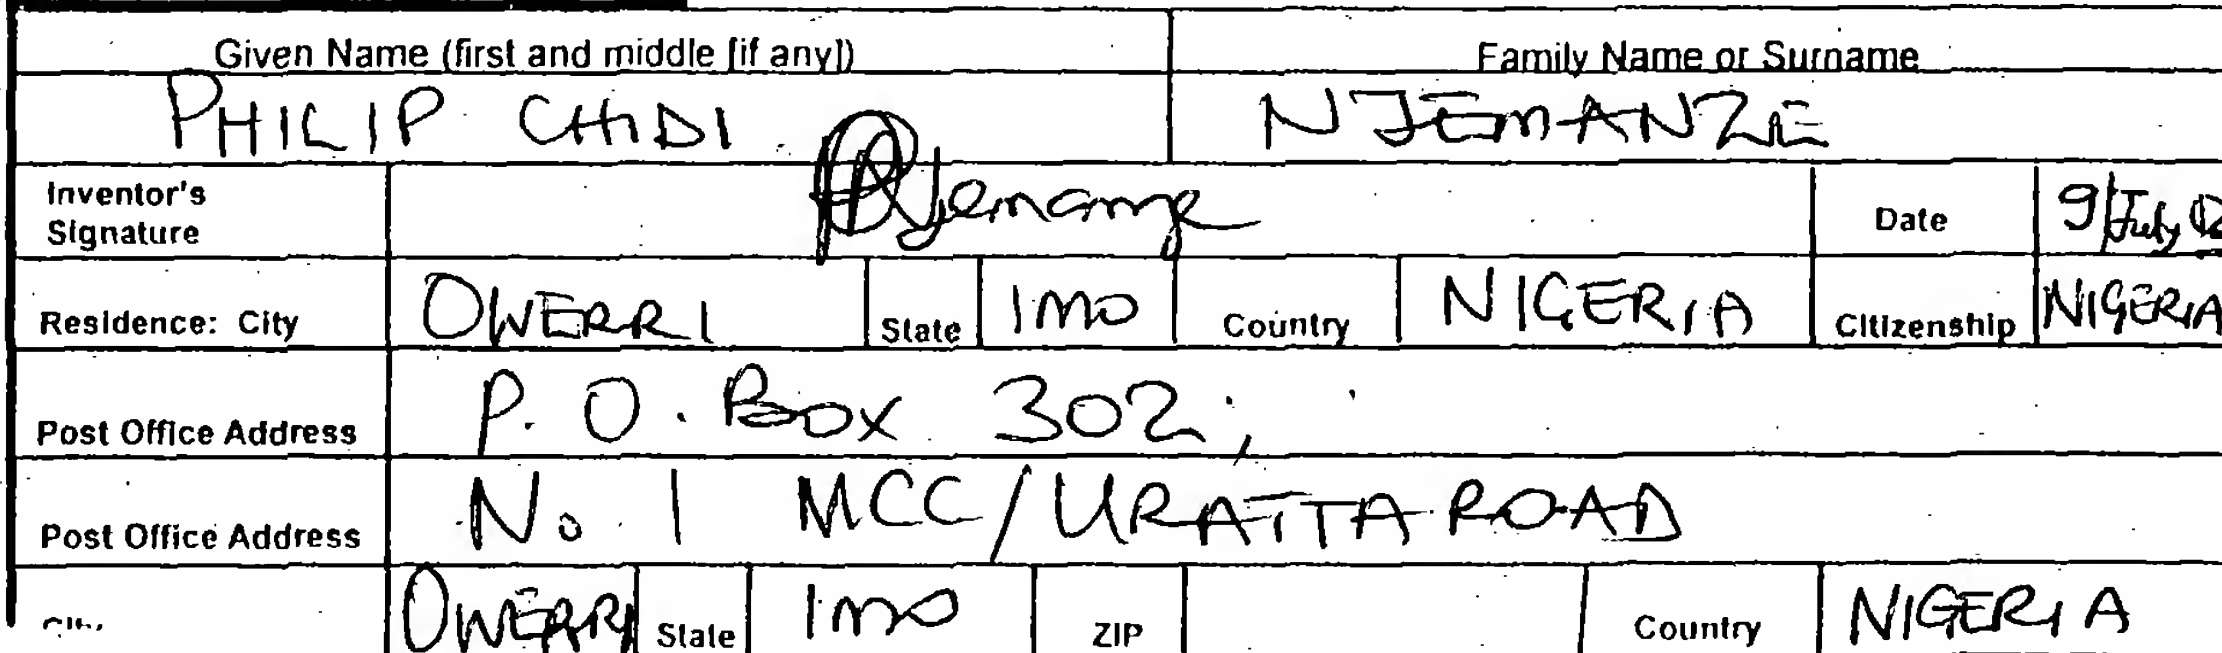 Given Name (first and middle [if any]) Family Name or Surname
PHILIP CHIDI NJEMANZE
Inventor's Signature Njemanze Date 9/July
Residence: City OWERRI State IMO Country NIGERIA Citizenship NIGERIA
Post Office Address P.O. Box 302,
Post Office Address No. 1 MCC/URATTA ROAD
City OWERRI State IMO ZIP Country NIGERIA